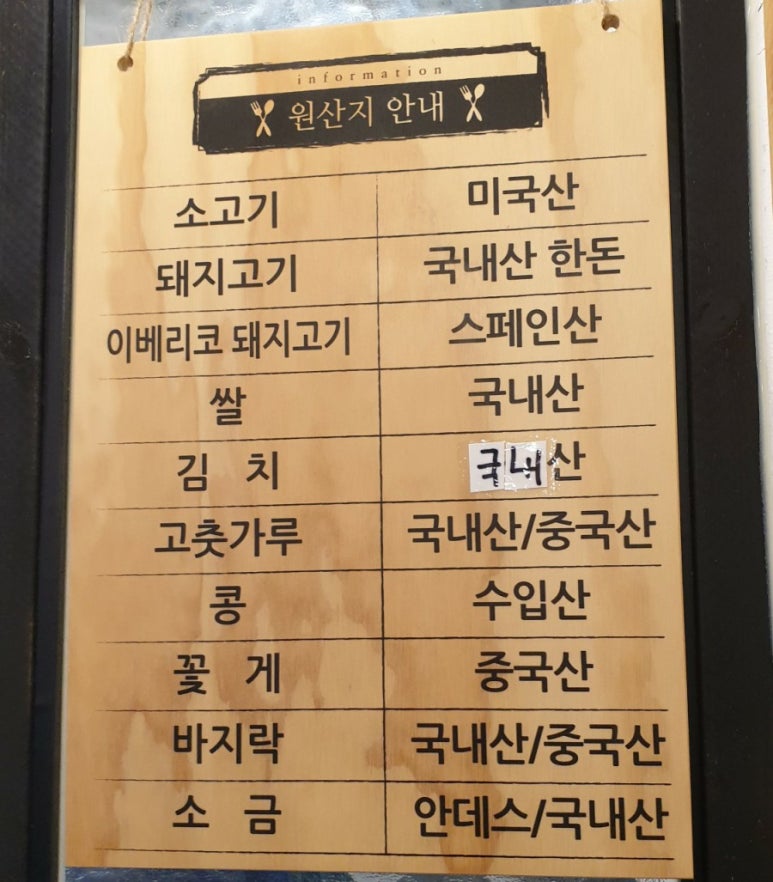 information
원산지 안내
소고기 미국산
돼지고기 국내산 한돈
이베리코 돼지고기 스페인산
쌀 국내산
김 치 국내산
고춧가루 국내산/중국산
콩 수입산
꽃 게 중국산
바지락 국내산/중국산
소 금 안데스/국내산